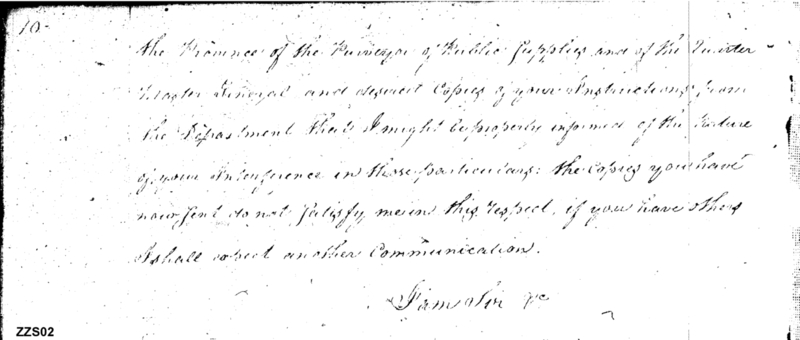 10
the Province of the Purveyor of Public Supplies and of the Quarter
Master General and desired Copies of your Instructions from
the Department that I might be properly informed of the Nature
of your Interference in those particulars: the Copies you have
now sent do not satisfy me in this respect, if you have others
I shall expect another Communication.
I am Sir &c
ZZS02